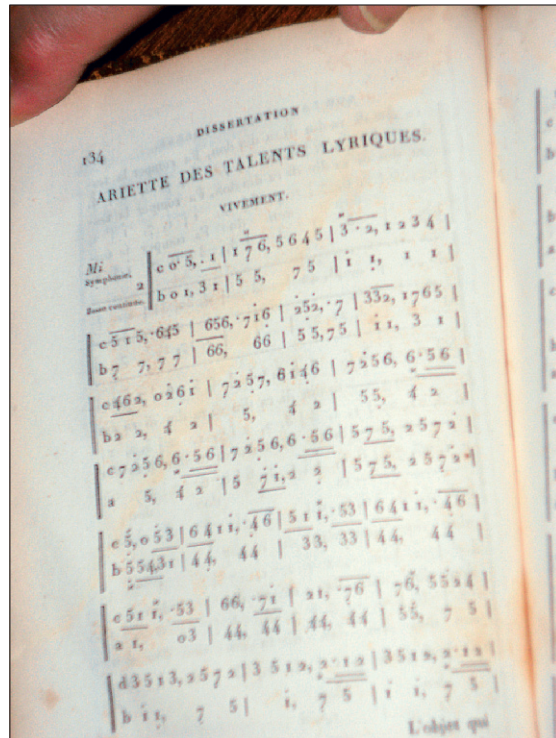 DISSERTATION
134
ARIETTE DES TALENTS LYRIQUES.
VIVEMENT.
Mi
Symphonie,
2
Basse continue,
c 0 5, . 1 | 1 7 6, 5 6 4 5 | 3 . 2, 1 2 3 4 |
b 0 1, 3 1 | 5 5, 7 5 | 1 1, 1 1 |
c 5 1 5, . 6 4 5 | 6 5 6, . 7 1 6 | 2 5 2, . 7 | 3 3 2, 1 7 6 5 |
b 7 7, 7 7 | 6 6, 6 6 | 5 5, 7 5 | 1 1, 3 1 |
c 4 6 2, 0 2 6 1 | 7 2 5 7, 6 1 4 6 | 7 2 5 6, 6 . 5 6 |
b 2 2, 4 2 | 5, 4 2 | 5 5, 4 2 |
c 7 2 5 6, 6 . 5 6 | 7 2 5 6, 6 . 5 6 | 5 7 5, 2 5 7 2 |
a 5, 4 2 | 5 7 1, 2 2 | 5 7 5, 2 5 7 2 |
c 5, 0 5 3 | 6 4 1 1, . 4 6 | 5 1 1, . 5 3 | 6 4 1 1, . 4 6 |
b 5 5 4, 3 1 | 4 4, 4 4 | 3 3, 3 3 | 4 4, 4 4 |
c 5 1 1, . 5 3 | 6 6, . 7 1 | 2 1, . 7 6 | 7 6, 5 5 2 4 |
2 1, 0 3 | 4 4, 4 4 | 4 4, 4 4 | 5 5, 7 5 |
d 3 5 1 3, 2 5 7 2 | 3 5 1 2, 2 . 1 2 | 3 5 1 2, 2 . 1 2 |
b 1 1, 7 5 | 1, 7 5 | 1 1, 7 5 |
L'objet qui